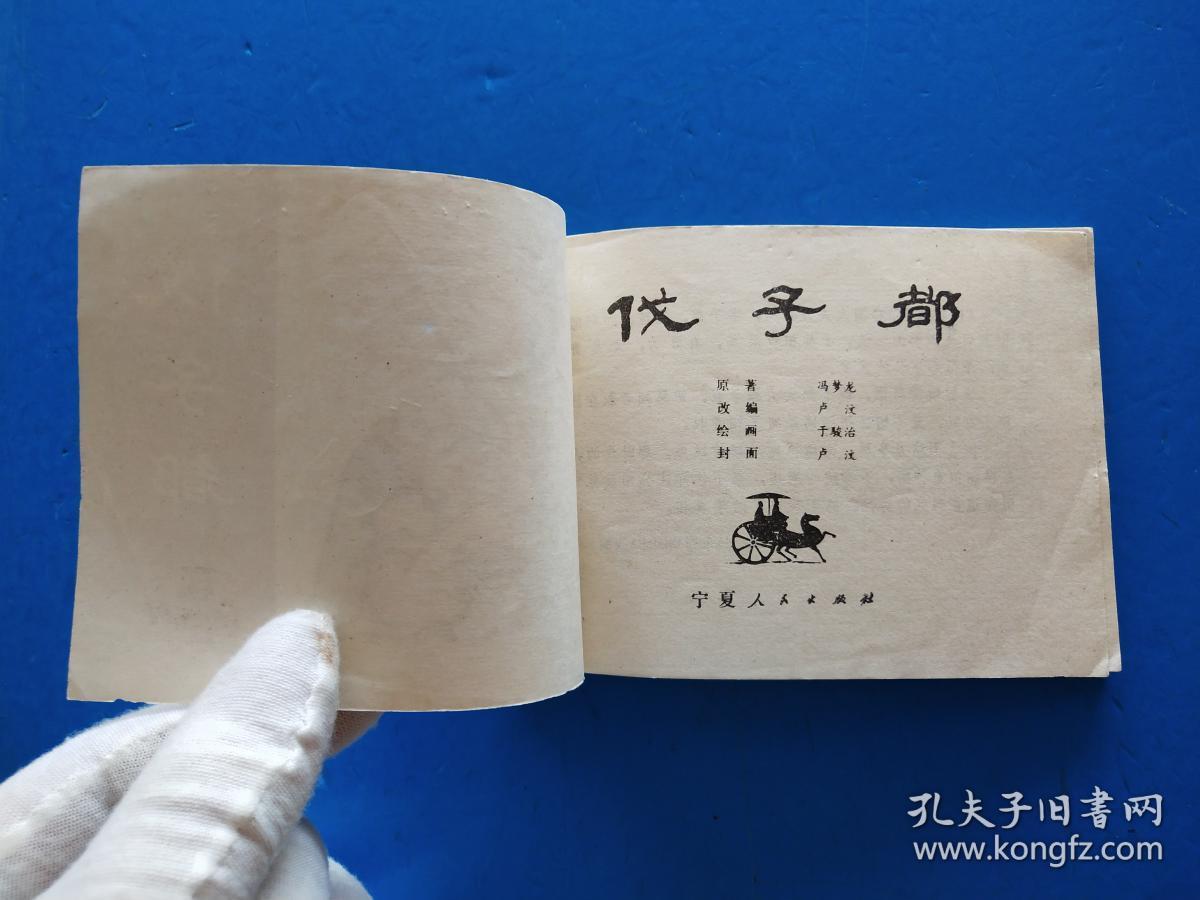 伐子都
原著 冯梦龙
改编 卢汶
绘画 于骏治
封面 卢汶
宁夏人民出版社
孔夫子旧書网
www.kongfz.com